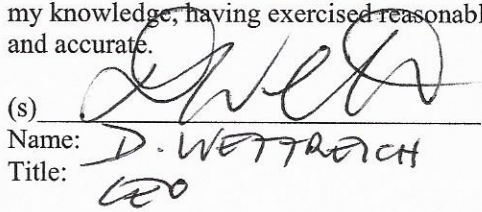 my knowledge, having exercised reasonabl
and accurate.
(s)
Name: D. WETTREICH
Title: CEO